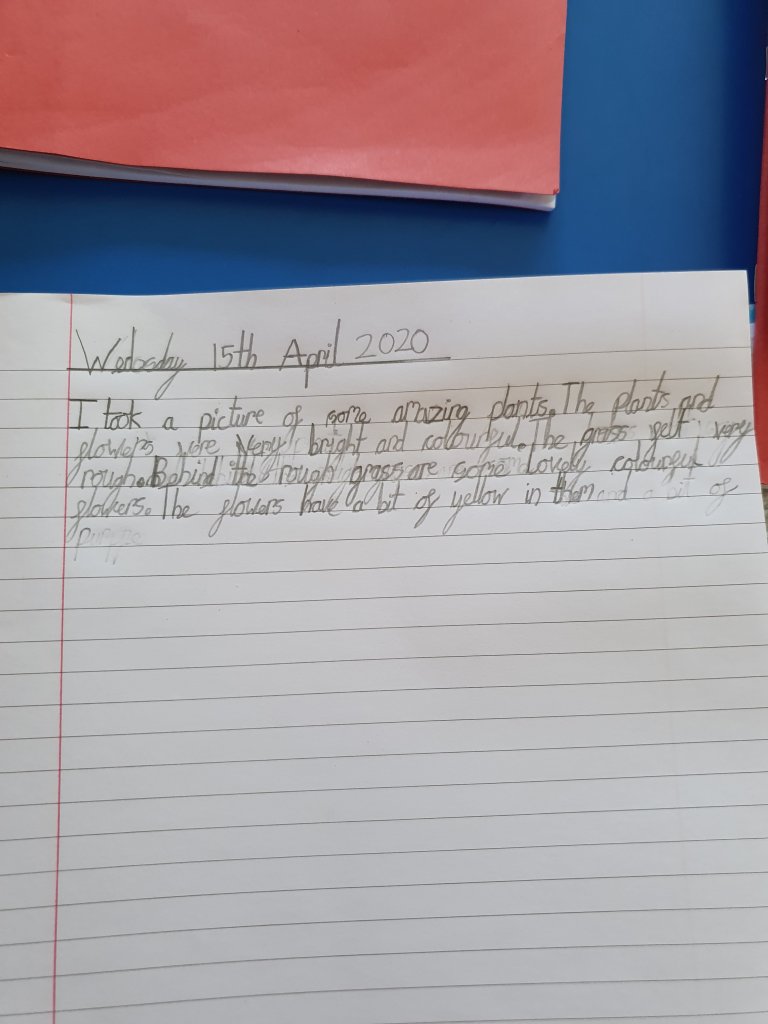 Wednesday 15th April 2020
I took a picture of some amazing plants. The plants and
flowers were very bright and colourful. The grass felt very
rough. Behind the rough grass are some lovely colourful
flowers. The flowers have a bit of yellow in them and a bit of
purple